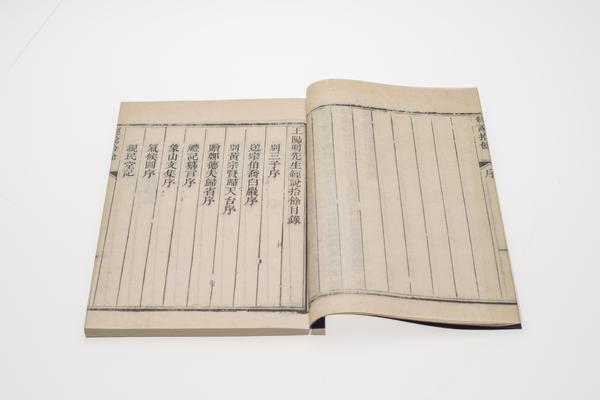 序
王陽明先生經說拾餘目錄
別三子序
送宗伯喬白巖序
別黃宗賢歸天台序
贈鄭德夫歸省序
禮記纂言序
象山文集序
氣候圖序
親民堂記